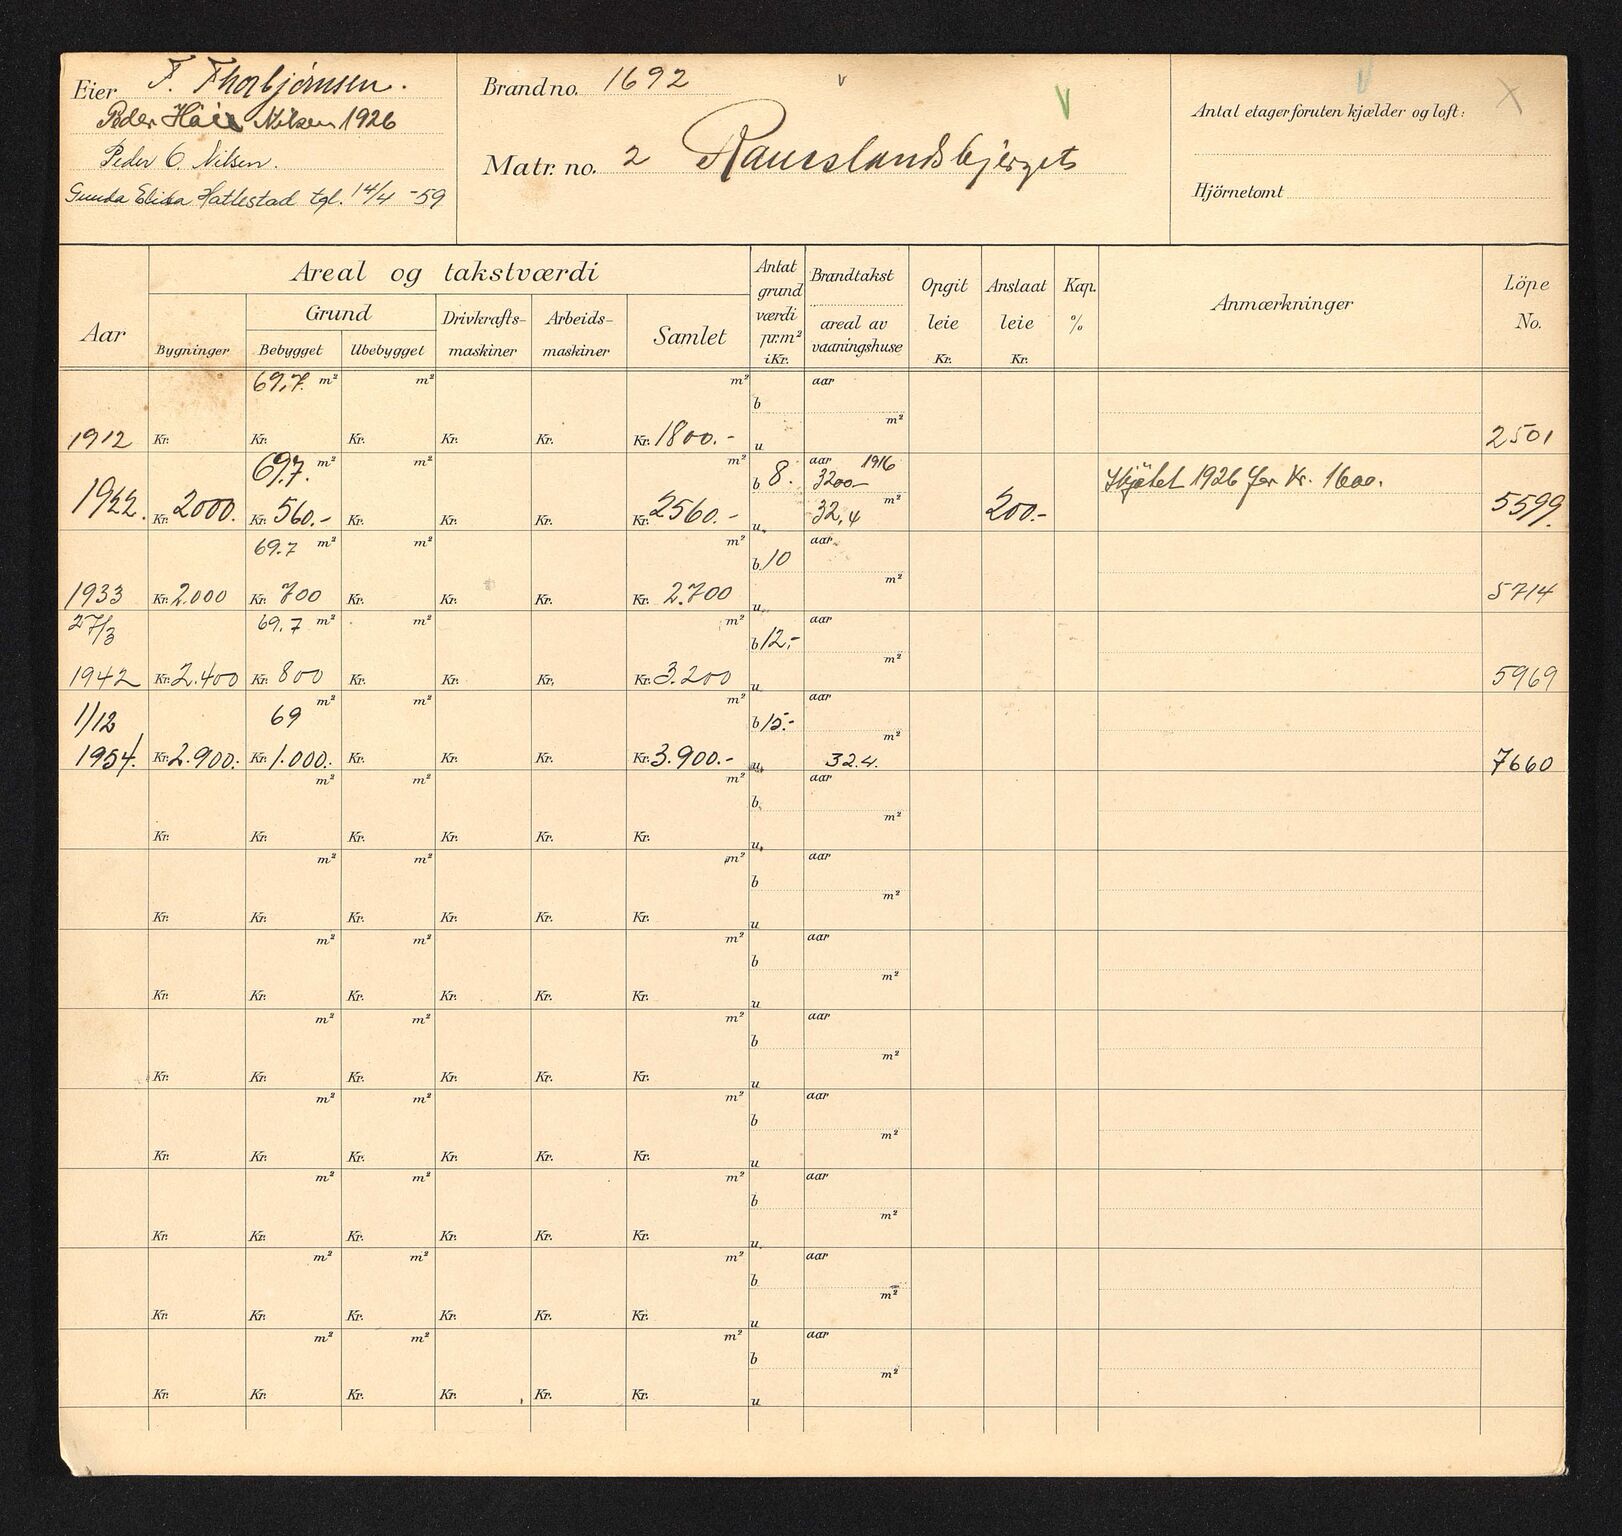 Eier T. Thorbjørnsen.
Peder Nilsen 1926
Peder O. Nilsen.
Gunda Elisa Hatlestad tgl. 14/4 -59
Brand no. 1692 v V
Matr. no. 2 Rauslandsbjerget
Antal etager foruten kjælder og loft:
Hjörnetomt
Areal og takstværdi
Aar Bygninger Grund Bebygget Ubebygget Drivkrafts-maskiner Arbeids-maskiner Samlet Antat grund værdi pr.m² i Kr. Brandtakst areal av vaaningshuse Opgit leie Kr. Anslaat leie Kr. Kap. % Anmærkninger Löpe No.
69,7 m² m² m² b aar m²
1912 Kr. Kr. Kr. Kr. Kr. Kr. 1800.- u 2501
69,7. m² m² m² b 8. aar 1916 3200- m² Skjötet 1926 for Kr. 1600.
1922. Kr. 2000. Kr. 560.- Kr. Kr. Kr. Kr. 2560.- u. 32,4 200.- 5599.
69.7 m² m² m² b. 10 aar m²
1933 Kr. 2.000 Kr. 700 Kr. Kr. Kr. Kr. 2.700 u. 5714
27/3 69.7 m² m² m² b 12,- aar m²
1942 Kr. 2.400 Kr. 800 Kr. Kr. Kr. Kr. 3.200 u 5969
1/12 69 m² m² m² b 15.- aar m²
1954. Kr. 2.900.- Kr. 1.000.- Kr. Kr. Kr. Kr. 3.900.- u. 32.4. 7660
m² m² m² b aar m²
Kr. Kr. Kr. Kr. Kr. Kr. u.
m² m² m² b aar m²
Kr. Kr. Kr. Kr. Kr. Kr. u
m² m² m² b aar m²
Kr. Kr. Kr. Kr. Kr. Kr. u
m² m² m² b aar m²
Kr. Kr. Kr. Kr. Kr. Kr. u
m² m² m² b aar m²
Kr. Kr. Kr. Kr. Kr. Kr. u
m² m² m² b aar m²
Kr. Kr. Kr. Kr. Kr. Kr. u.
m² m² m² b aar m²
Kr. Kr. Kr. Kr. Kr. Kr. u
m² m² m² b aar m²
Kr. Kr. Kr. Kr. Kr. Kr. u